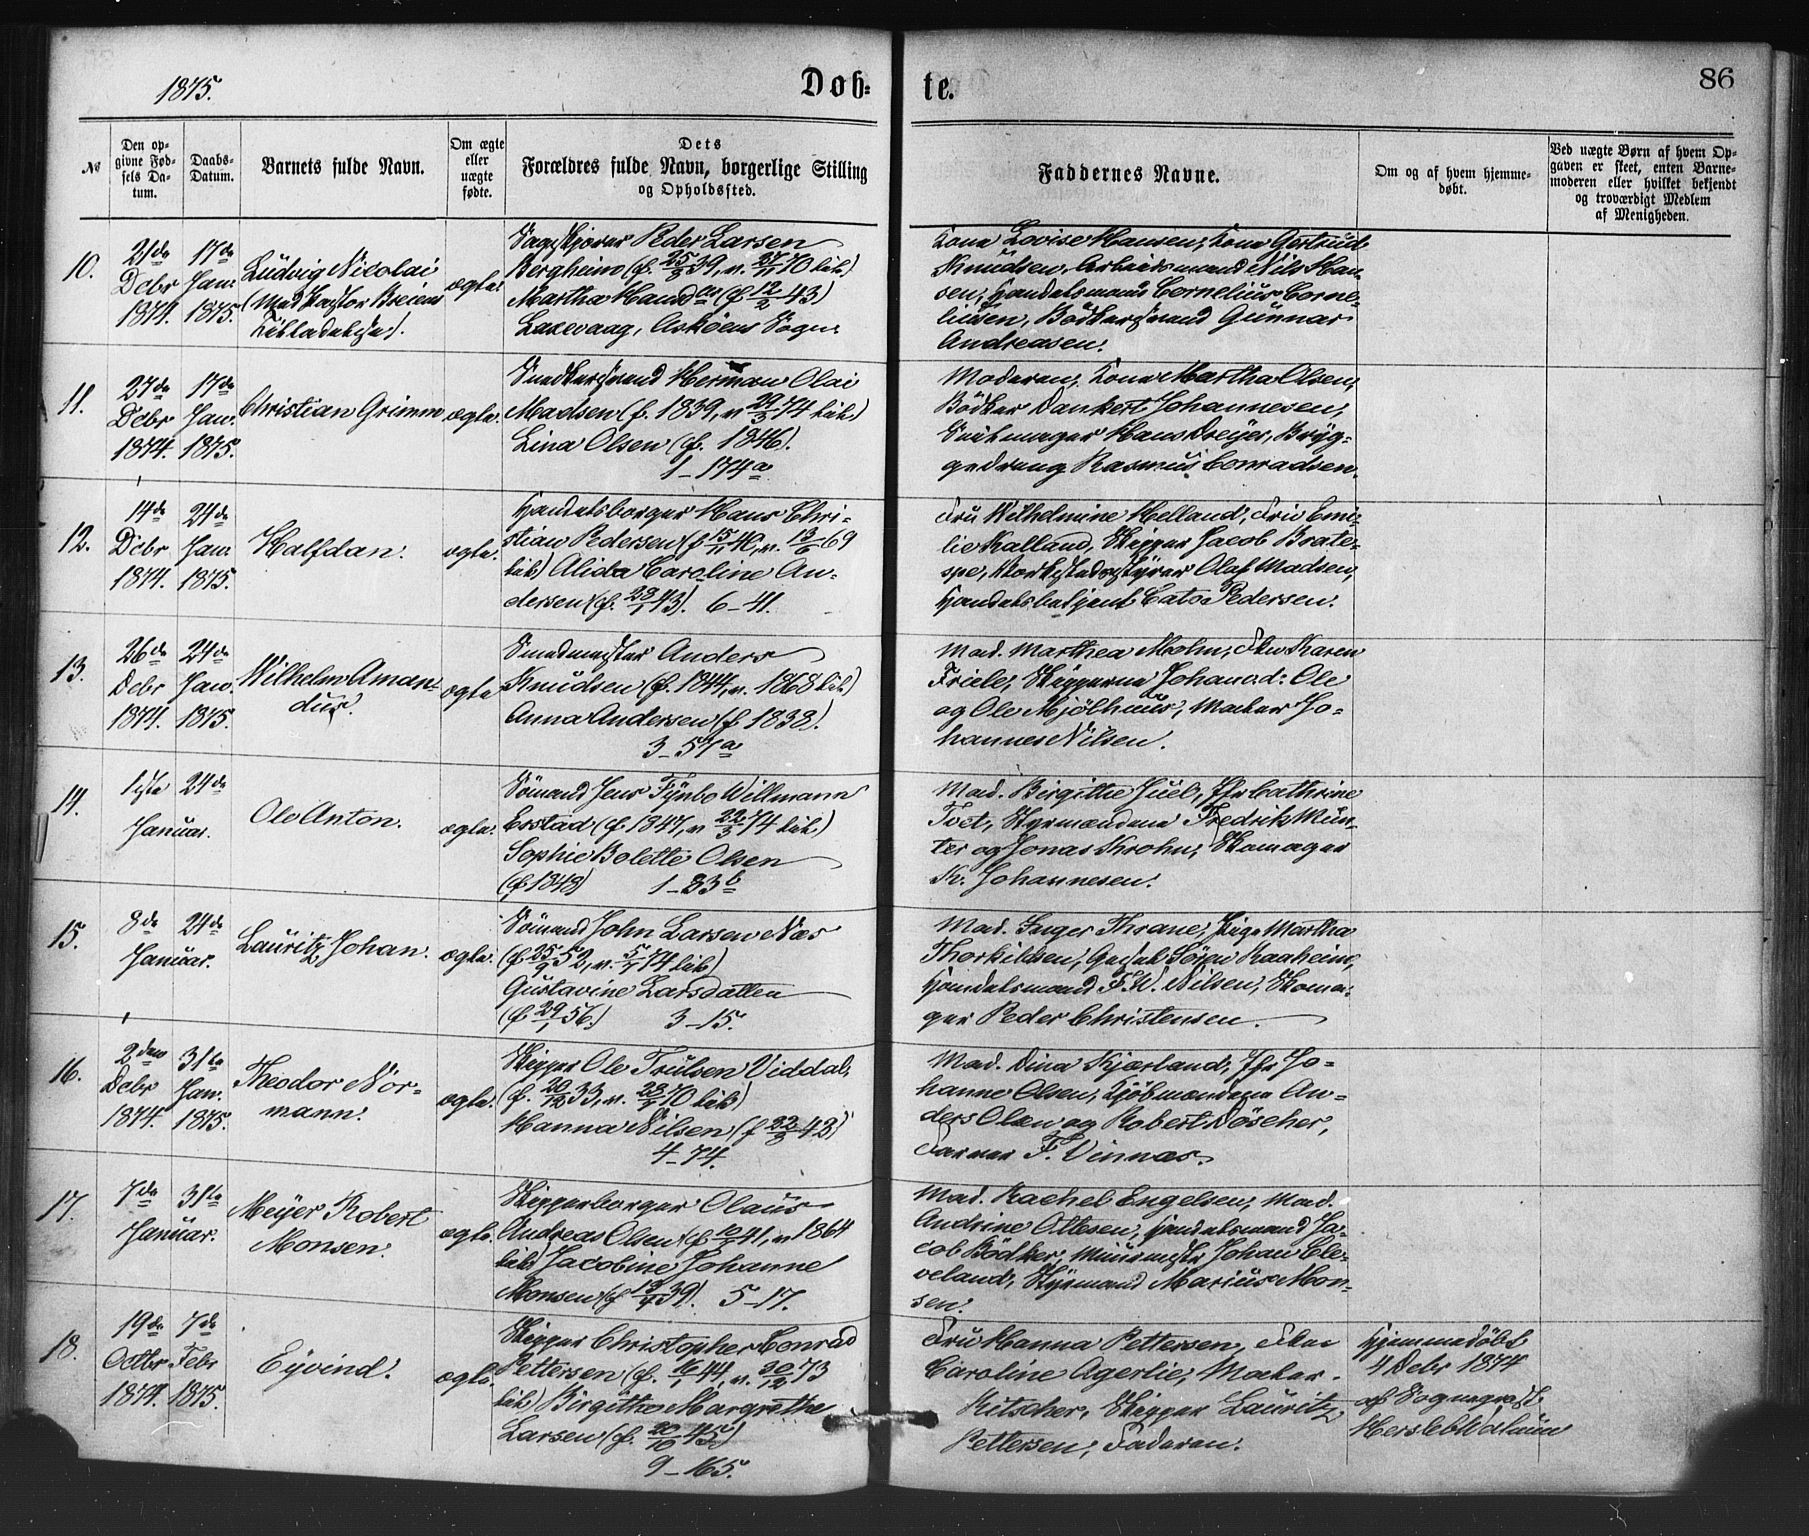 1875.
Døb-
te.
86
No
Den op-
givne Fød-
sels Da-
tum.
Daabs-
Datum.
Barnets fulde Navn.
Om ægte
eller
uægte
fødte.
Dets
Forældres fulde Navn, borgerlige Stilling
og Opholdssted.
Faddernes Navne.
Om og af hvem hjemme-
døbt.
Ved uægte Børn af hvem Op-
gaven er skeet, enten Barne-
moderen eller hvilket bekjendt
og troværdigt Medlem
af Menigheden.
10.
21de
Decbr
1874.
17de
Jan.
1875.
Ludvig Nicolai
(Med Pastor Breiens
Tilladelse).
ægte.
Peder Larsen
Bergheim (f. 25/9 39, v. 27/11 70 Lik)
Martha Hansd. (f. 12/2 43)
Laxevaag, Askøens Sogn.
Kone Lovise Hansen, Kone Gertrud
Knudsen, Arbeidsmand Nils Han-
sen, Handelsmand Cornelius Corne-
liusen, Bødkersvend Gunnar
Andreasen.
11.
27de
Decbr
1874.
17de
Jan.
1875.
Christian Grimm
ægte.
Snedkersvend Herman Olai
Madsen (f. 1839, v. 29/3 74 Lik)
Lina Olsen (f. 1846).
1–174a
Moderen, Kone Martha Olsen,
Bødker Dankert Johannesen,
Seilmager Hans Dreyer, Bryg-
gedreng Rasmus Conradsen.
12.
14de
Decbr
1874.
24de
Jan.
1875.
Halfdan.
ægte.
Handelsborger Hans Chri-
stian Pedersen (f. 15/11 40, v. 13/6 69
Lik) Alida Caroline An-
dersen (f. 28/1 43). 6–41.
Fru Wilhelmine Helland, Frk. Emi-
lie Kalland, Skipper Jacob Brate-
spe, Værkstedsstyrer Oluf Madsen,
Handelsbetjent Cato Pedersen.
13.
26de
Decbr
1874.
24de
Jan.
1875.
Wilhelm Aman-
dus.
ægte
Smedmester Anders
Knudsen (f. 1844, v. 1868 Lik)
Anna Andersen (f 1838).
3–57a
Mad. Marthea Mohn, Frk. Karen
Friele, Skipperne Johan d: Ole
og Ole Mjølhuus, Mækler Jo-
hannes Nilsen.
14.
1ste
Januar.
24de
Ole Anton.
ægte.
Sømand Jens Fynbo Willmann
Erstad (f 1847, v. 22/3 74 Lik)
Sophie Bolette Olsen
(f. 1848) 1–83b
Mad. Birgithe Juel, Jfr Cathrine
Tvet, Styrmændene Fredrik Mün-
ter og Jonas Krohn, Skomager
K. Johannesen.
15.
8de
Januar.
24de
Lauritz Johan.
ægte.
Sømand John Larsen Næs
(f. 25/9 52, v. 5/7 74 Lik)
Gustavine Larsdatter
(f. 29/1 56.) 3–15.
Mad. Inger Thrane, Pige Martha
Thorkildsen, Gaselt Søren Raaheim,
Handelsmand F. W. Nilsen, Skoma-
ger Peder Christensen.
16.
2den
Decbr
1874.
31te
Jan.
1875.
Theodor Nor-
mann.
ægte.
Skipper Ole Trulsen Viddal,
(f. 20/12 33, v. 28/7 70 Lik)
Hanna Nilsen (f 22/3 42)
4–74.
Mad. Dina Kjærland, Jfr Jo-
hanne Olsen, Kjøbmændene An-
ders Olsen og Robert Döscher,
Farver F. Vinnæs.
17.
7de
Januar.
31te
Meyer Robert
Monsen.
ægte.
Skipperborger Olaus
Andreas Olsen (f. 10/2 41, v. 1864
Lik) Jacobine Johanne
Monsen (f 13/4 39). 5–17.
Mad. Rachel Engelsen, Mad.
Andrine Ottesen, Handelsmand Ja-
cob Bødker, Muurmester Johan Cle-
veland, Styrmand Marius Mon-
sen.
18.
19de
Octbr
1874.
7de
Febr
1875.
Eyvind.
ægte.
Skipper Christopher Conrad
Pettersen (f. 16/1 44, v. 30/12 73
Lik) Birgithe Margrethe
Larsen (f. 20/10 45)
9–165.
Fru Hanna Pettersen, Frk.
Caroline Agerlie, Mækler
Kitscher, Skipper Lauritz
Pettersen, Faderen.
Hjemmedøbt
4 Decbr 1874
af Sogneprest
Hersleb Walnum